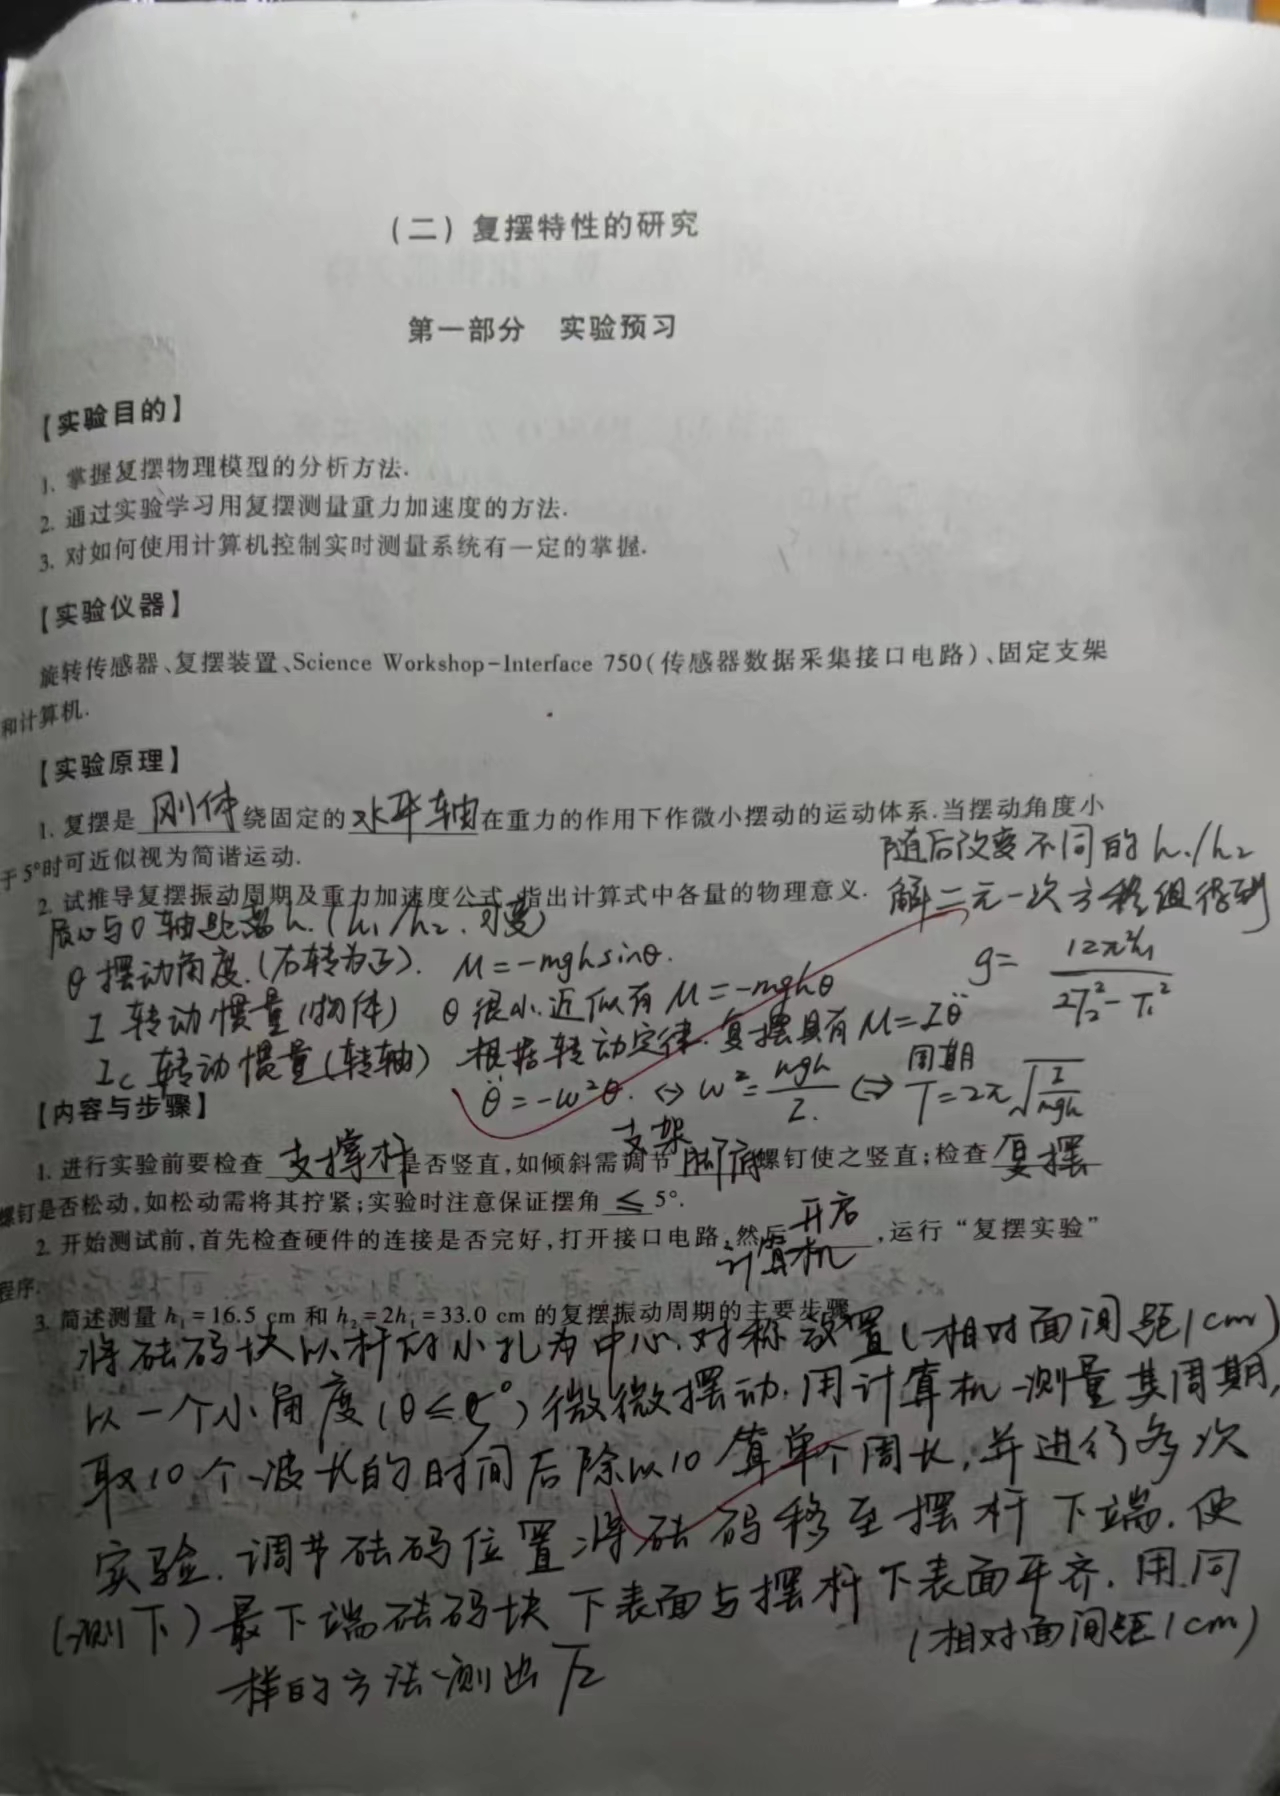 （二）复摆特性的研究
第一部分 实验预习
【实验目的】
1. 掌握复摆物理模型的分析方法.
2. 通过实验学习用复摆测量重力加速度的方法.
3. 对如何使用计算机控制实时测量系统有一定的掌握.
【实验仪器】
旋转传感器、复摆装置、Science Workshop-Interface 750(传感器数据采集接口电路)、固定支架
和计算机.
【实验原理】
1. 复摆是 刚体 绕固定的 水平轴 在重力的作用下作微小摆动的运动体系.当摆动角度小
于5°时可近似视为简谐运动.
随后改变不同的 h₁/h₂
2. 试推导复摆振动周期及重力加速度公式,指出计算式中各量的物理意义.
解二元一次方程组得到
质心与O轴距离h.(h₁/h₂.可变)
g= 12π²h₁ / 2T₂²-T₁²
θ 摆动角度.(右转为正). M=-mghsinθ.
I 转动惯量(物体) θ很小.近似有 M=-mghθ
Ic 转动惯量(转轴) 根据转动定律.复摆具有 M=Iθ̈
θ̈=-ω²θ. ⇔ ω²=mgh/I. ⇔ 周期 T=2π√(I/mgh)
【内容与步骤】
1. 进行实验前要检查 支撑杆 是否竖直,如倾斜需调节 支架脚底 螺钉使之竖直;检查 复摆
螺钉是否松动,如松动需将其拧紧;实验时注意保证摆角 ≤ 5°.
2. 开始测试前,首先检查硬件的连接是否完好,打开接口电路,然后 开启计算机 ,运行“复摆实验”
程序.
3. 简述测量 h₁=16.5 cm 和 h₂=2h₁=33.0 cm 的复摆振动周期的主要步骤.
将砝码块以杆的小孔为中心.对称设置(相对面间距1cm)
以一个小角度(θ≤5°)微微摆动.用计算机测量其周期,
取10个波长的时间后除以10算单个周长,并进行多次
实验.调节砝码位置将砝码移至摆杆下端.使
(测下)最下端砝码块下表面与摆杆下表面平齐.用同
(相对面间距1cm)
样的方法测出T₂